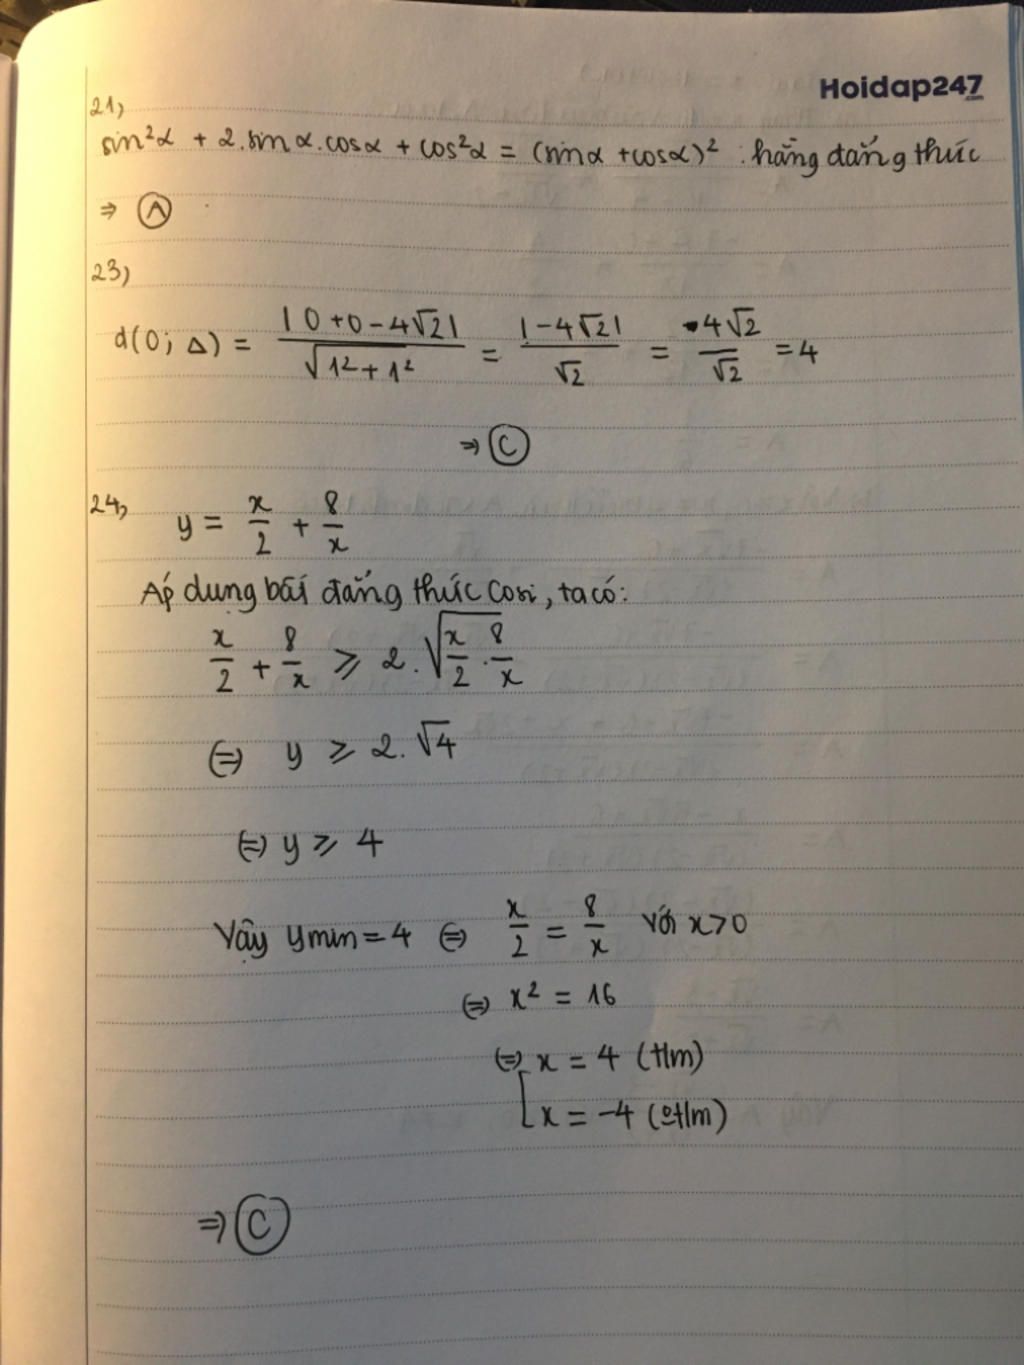 Hoidap247
21,
sin²α + 2.sinα.cosα + cos²α = (sinα + cosα)² : hằng đẳng thức
⇒ Ⓐ
23)
d(O; Δ) = |0+0-4√2| / √(1²+1²) = |-4√2| / √2 = 4√2 / √2 = 4
⇒ Ⓒ
24,
y = x/2 + 8/x
Áp dụng bất đẳng thức Cosi, ta có:
x/2 + 8/x ⩾ 2.√(x/2 . 8/x)
⇔ y ⩾ 2.√4
⇔ y ⩾ 4
Vậy ymin = 4 ⇔ x/2 = 8/x với x>0
⇔ x² = 16
⇔ [ x = 4 (tlm)
x = -4 (otlm)
⇒ Ⓒ